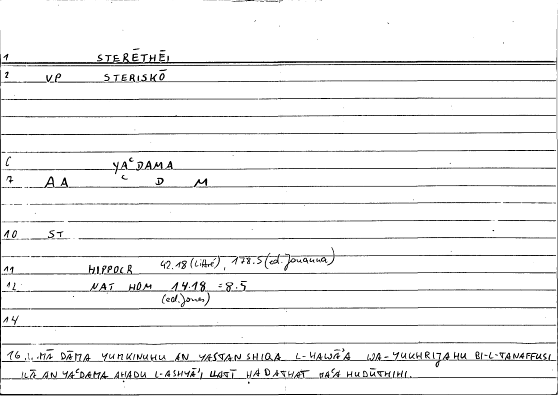 1 STERĒTHĒI
2 VP STERISKŌ
6 YAᶜDAMA
7 AA ᶜ D M
10 ST
11 HIPPOCR 42.18 (Littré), 178.5 (ed. Jouanna)
12 NAT HOM 14.18 = 8.5
(ed. Jones)
14
16 MĀ DĀMA YUMKINUHU AN YASTANSHIQA L-HAWĀ'A WA-YUKHRIJAHU BI-L-TANAFFUSI
ILĀ AN YAᶜDAMA AḤADU L-ASHYĀ'I LLATĪ HADATHAT MAᶜA HUDŪTHIHI.